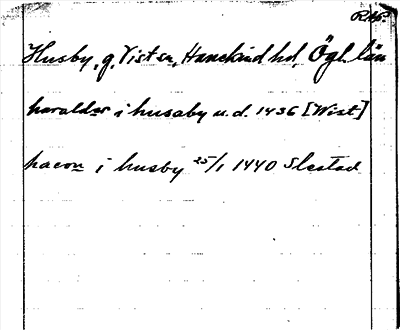 RAP.
Husby, g, Vist sn, Hanekind hd, Ögl. län
haralder i husaby u.d. 1436 [Wist]
hacon i husby 25/1 1440 Slestad